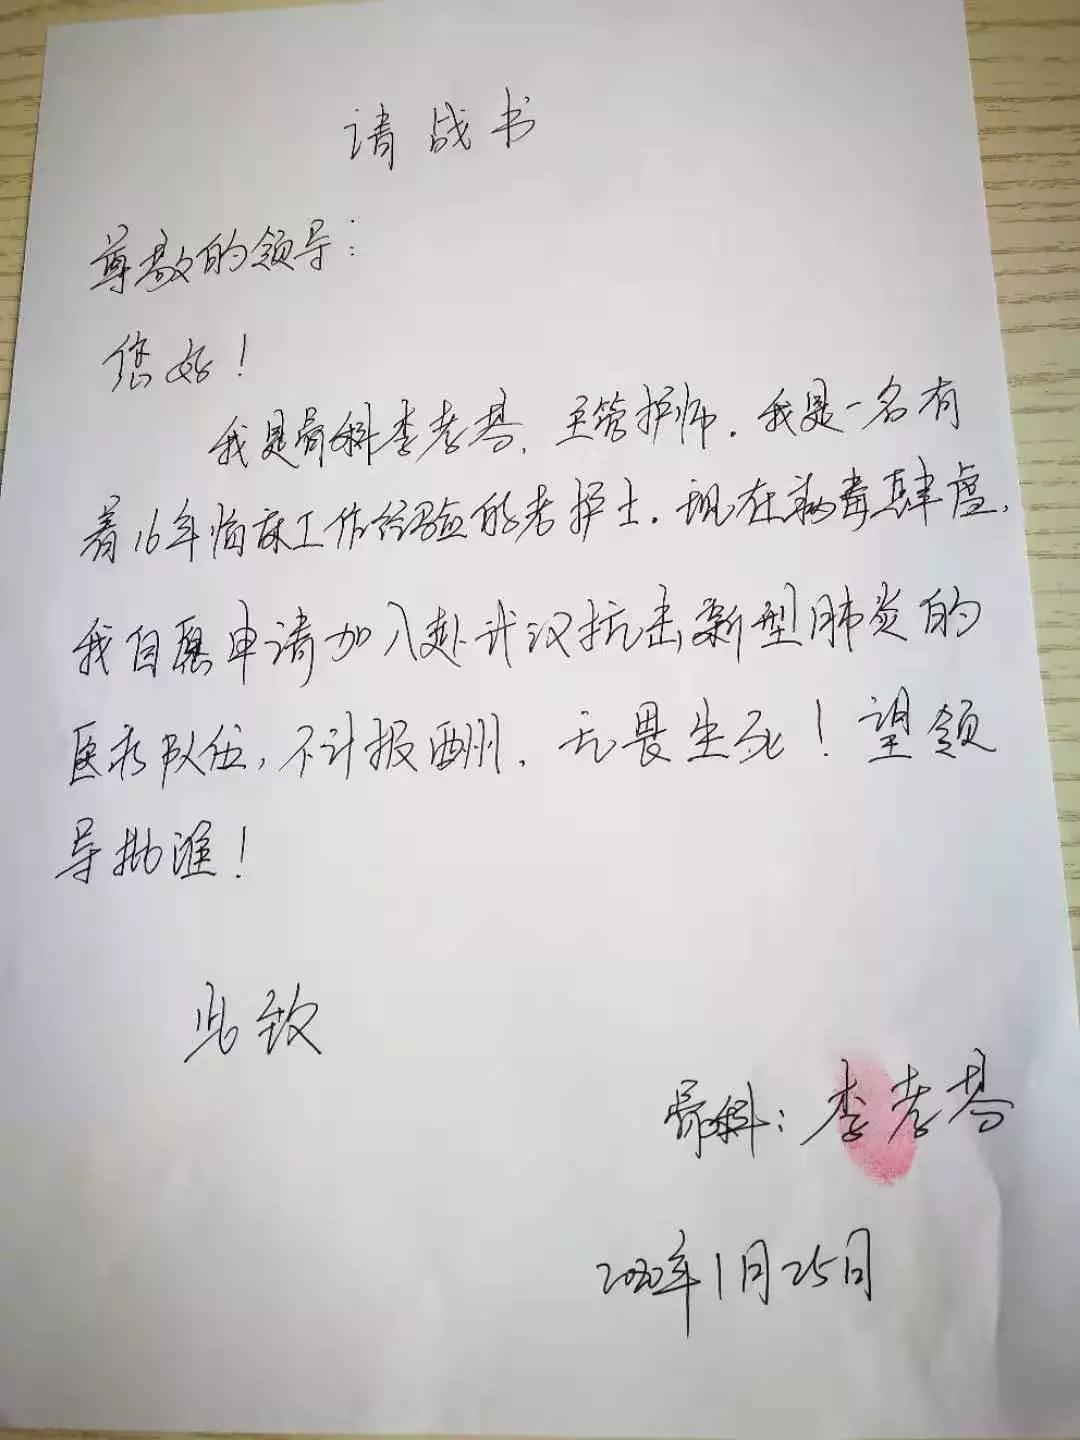 请战书
尊敬的领导：
您好！
我是骨科李孝琴，主管护师。我是一名有
着16年临床工作经验的老护士。现在病毒肆虐，
我自愿申请加入赴武汉抗击新型肺炎的
医疗队伍，不计报酬，无畏生死！望领
导批准！
此致
骨科：李孝琴
2020年1月25日